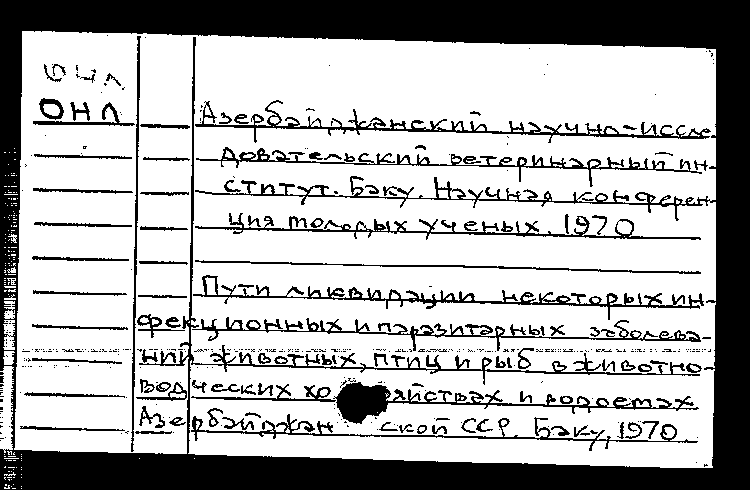 ОНЛ
ОНЛ
Азербайджанский научно-иссле
довательский ветеринарный ин-
ститут. Баку. Научная конферен-
ция молодых ученых. 1970
Пути ликвидации некоторых ин-
фекционных и паразитарных заболева-
ний животных, птиц и рыб в животно-
водческих хо яйствах и водоемах
Азербайджан ской ССР. Баку, 1970